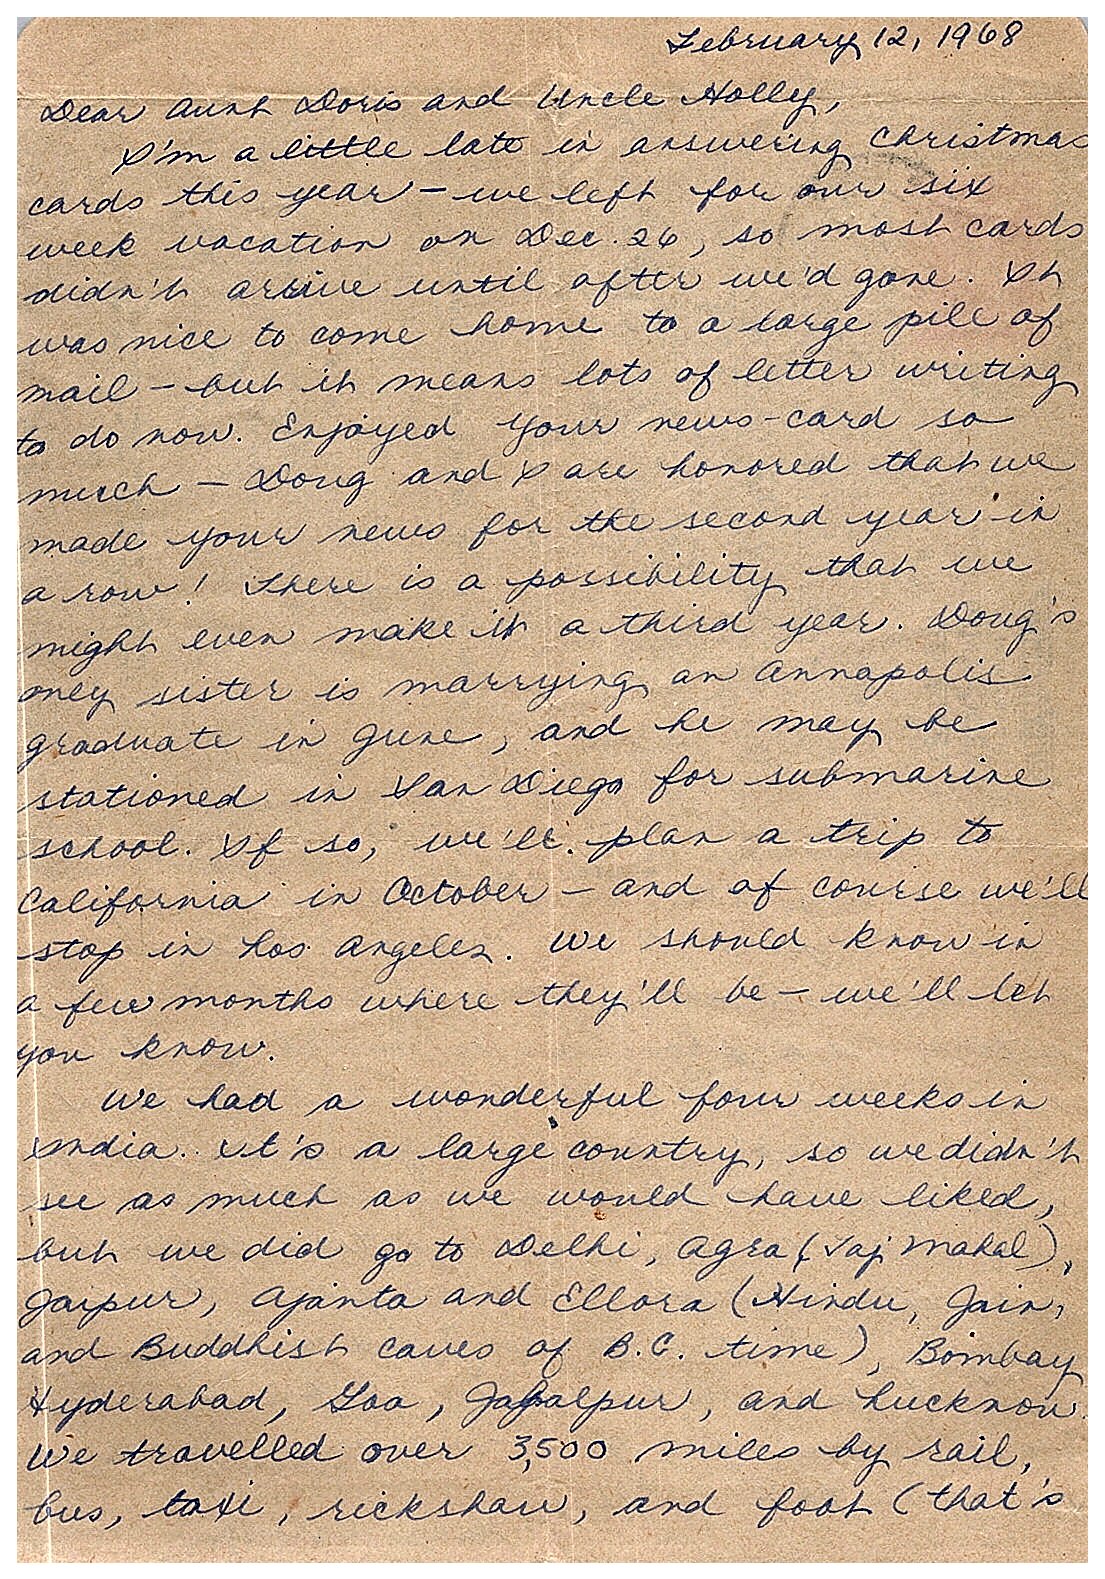 February 12, 1968
Dear Aunt Doris and Uncle Holly,
I'm a little late in answering Christmas
cards this year – we left for our six
week vacation on Dec. 26, so most cards
didn't arrive until after we'd gone. It
was nice to come home to a large pile of
mail – but it means lots of letter writing
to do now. Enjoyed your news-card so
much – Doug and I are honored that we
made your news for the second year in
a row! There is a possibility that we
might even make it a third year. Doug's
only sister is marrying an Annapolis
graduate in June, and he may be
stationed in San Diego for submarine
school. If so, we'll plan a trip to
California in October – and of course we'll
stop in Los Angeles. We should know in
a few months where they'll be – we'll let
you know.
We had a wonderful four weeks in
India. It's a large country, so we didn't
see as much as we would have liked,
but we did go to Delhi, Agra (Taj Mahal),
Jaipur, Ajanta and Ellora (Hindu, Jain,
and Buddhist caves of B.C. time), Bombay
Hyderabad, Goa, Jabalpur, and Lucknow.
We travelled over 3,500 miles by rail,
bus, taxi, rickshaw, and foot (that's